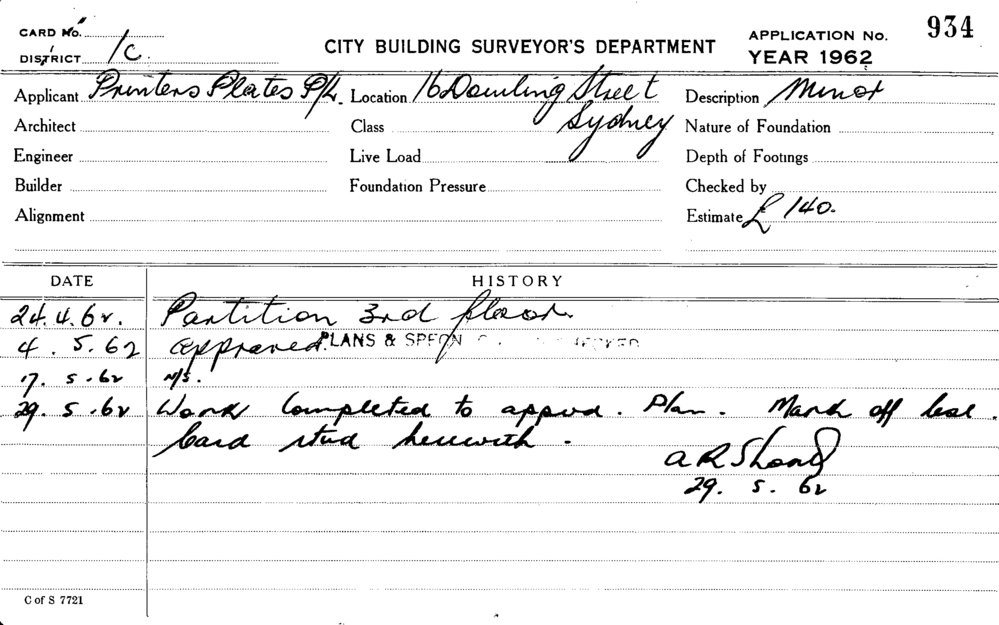 CARD No.
DISTRICT 1C.
CITY BUILDING SURVEYOR'S DEPARTMENT
APPLICATION No. 934
YEAR 1962
Applicant Printers Plates P/L. Location 16 Dowling Street Description Minor
Architect Class Sydney Nature of Foundation
Engineer Live Load Depth of Footings
Builder Foundation Pressure Checked by
Alignment Estimate £ 140.
DATE HISTORY
24.4.62. Partition 3rd floor.
4.5.62 Approved. PLANS & SPECN
17.5.62 N/S.
29.5.62 Work Completed to appvd. Plan. Mark off
Card herewith.
29.5.62
C of S 7721